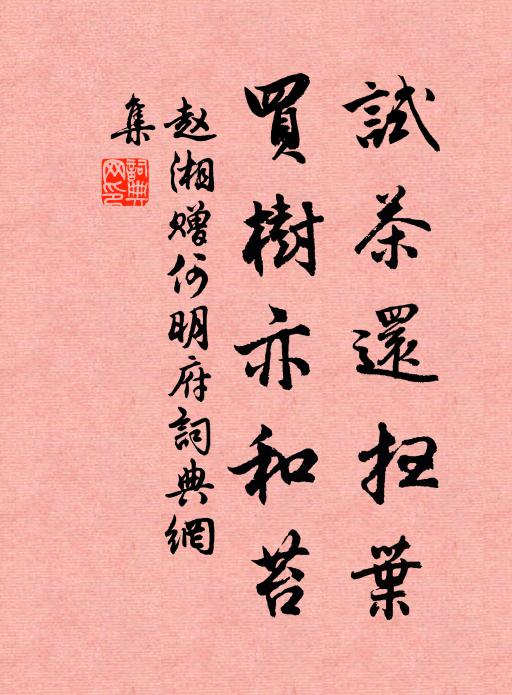 試茶還扫葉
買樹亦和苔
赵湘赠何明府詞典網
集
詞典
网印